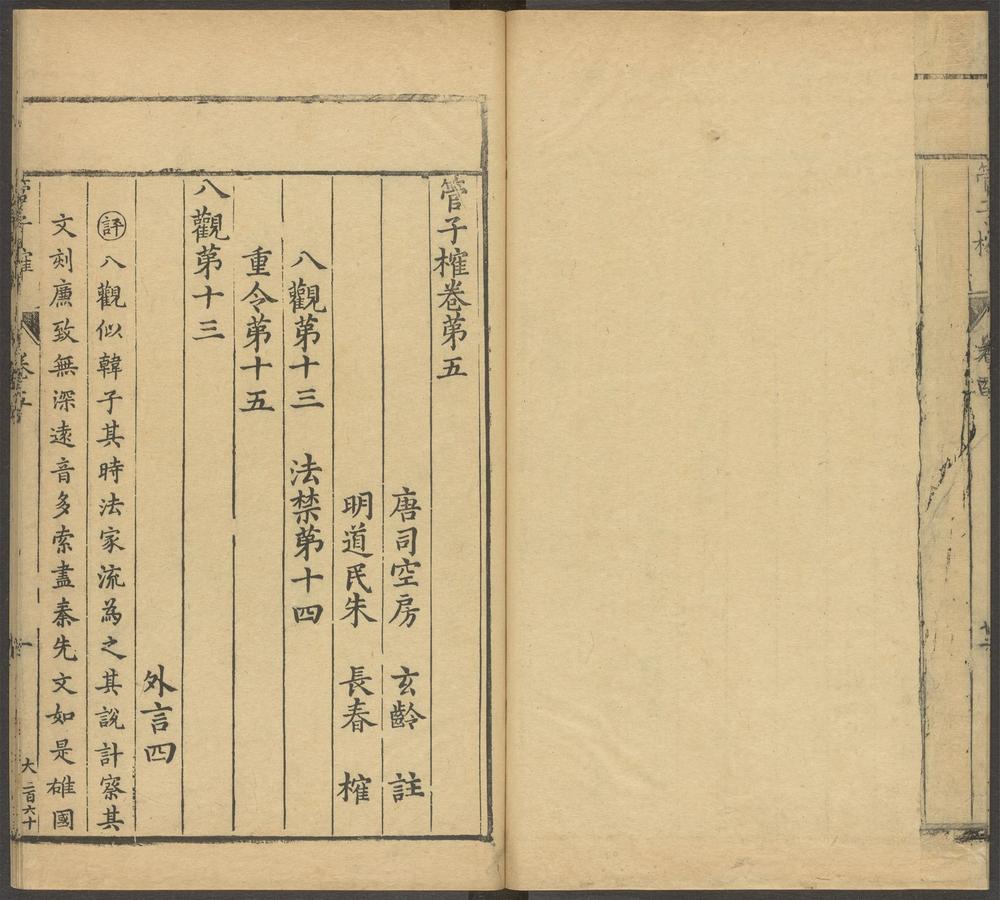 管子榷卷第五
唐司空房 玄齡 註
明道民朱 長春 榷
八觀第十三 法禁第十四
重令第十五
外言四
八觀第十三
評 八觀似韓子其時法家流為之其說計察其
文刻廉致無深遠音多索盡秦先文如是雄國
卷五
一
大二百六十